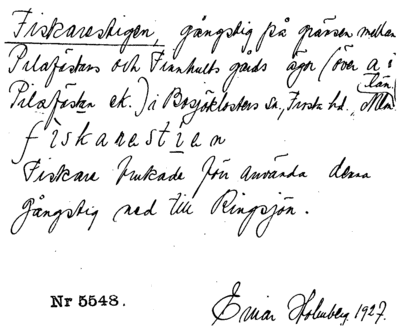 Fiskarestigen, gångstig på gränsen mellan
Pilafästans och Finnhults gårds ägor (över a i
Pilafästan ek.) i Bosjöklosters sn, Frosta hd. Mlm.
län.
fiskarestien
Fiskare brukade förr använda denna
gångstig ned till Ringsjön.
Nr 5548.
Einar Holmberg 1927.